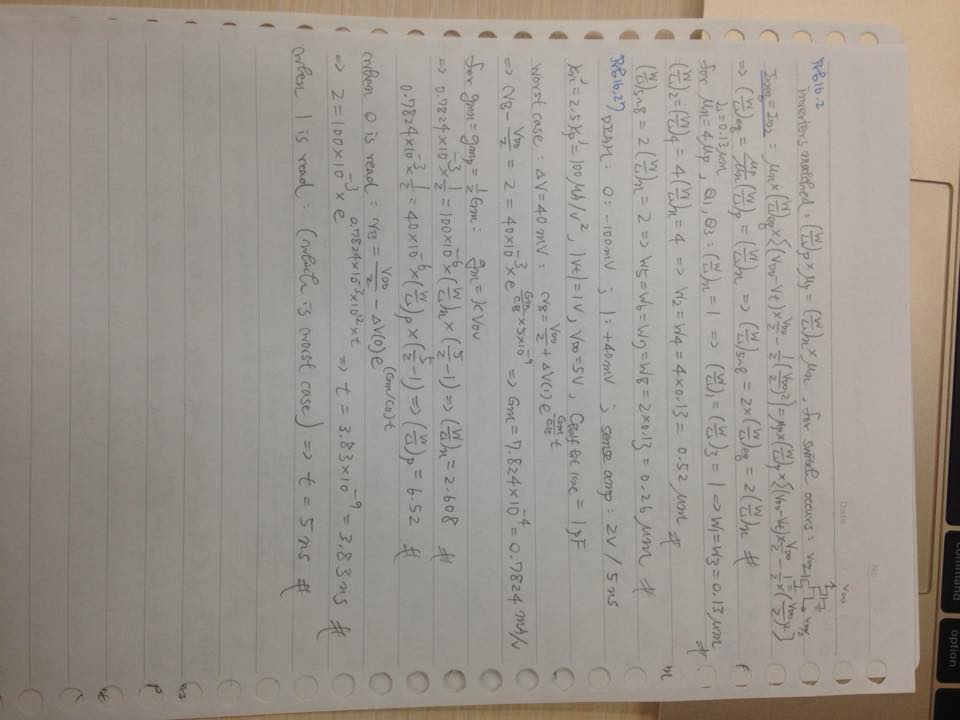 No.
Date
16.2
inverters matched : (W/L)p × μp = (W/L)n × μn , for switch occurs : VDD
= μn × (W/L) × {(VDD-Vt) × VDD/2 - 1/2(VDD/2)²} = μp × (W/L)p × {(VDD-Vt) × VDD/2 - 1/2 × (VDD/2)²}
⇒ (W/L) = μp/μn (W/L)p = (W/L)n ⇒ (W/L)5n8 = 2 × (W/L) = 2(W/L)n #
L = 0.13μm
for μn = 4μp , Q1, Q3 : (W/L)n = 1 ⇒ (W/L)1 = (W/L)3 = 1 ⇒ W1 = W3 = 0.13μm #
(W/L)2 = (W/L)4 = 4(W/L)n = 4 ⇒ W2 = W4 = 4×0.13 = 0.52 μm #
(W/L)5n8 = 2(W/L)n = 2 ⇒ W5 = W6 = W7 = W8 = 2×0.13 = 0.26 μm #
16.27 DRAM : 0 : -100mV ; 1 : +40mV ; sense amp : 2V / 5ns
kn' = 2.5kp' = 100 μA/V² , |Vt| = 1V , VDD = 5V , Cbit line = 1pF
worst case : ΔV = 40mV : VB = VDD/2 + ΔV(1) e^(Gm/CB)t
⇒ VB - VDD/2 = 2 = 40×10^-3 × e^(Gm/CB × 5×10^-9) ⇒ Gm = 7.824×10^-4 = 0.7824 mA/V
for gmn = gmp = 1/2 Gm : gm = kVov
⇒ 0.7824×10^-3 × 1/2 = 100×10^-6 × (W/L)n × (5/2 - 1) ⇒ (W/L)n = 2.608 #
0.7824×10^-3 × 1/2 = 40×10^-6 × (W/L)p × (5/2 - 1) ⇒ (W/L)p = 6.52 #
when 0 is read : VB = VDD/2 - ΔV(0) e^(Gm/CB)t
⇒ 2 = 100×10^-3 × e^(0.7824×10^-3×10^12×t) ⇒ t = 3.83×10^-9 = 3.83 ns #
when 1 is read : (which is worst case) ⇒ t = 5 ns #
command
option